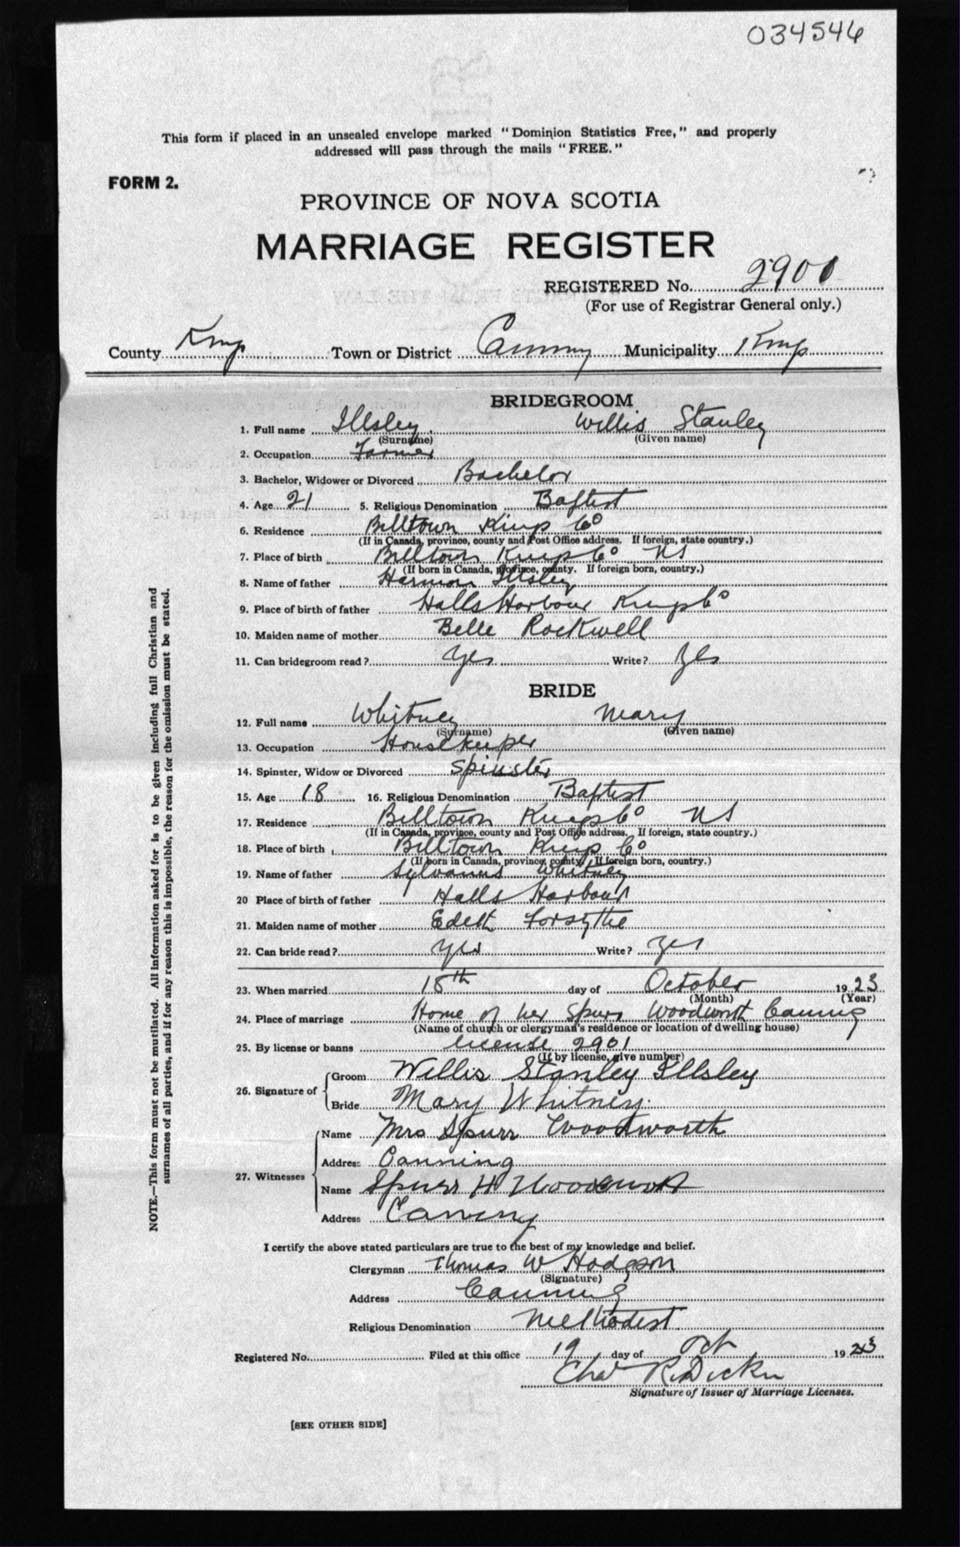 034546
This form if placed in an unsealed envelope marked "Dominion Statistics Free," and properly
addressed will pass through the mails "FREE."
FORM 2.
PROVINCE OF NOVA SCOTIA
MARRIAGE REGISTER
REGISTERED No. 2901
(For use of Registrar General only.)
County Kings Town or District Canning Municipality Kings
BRIDEGROOM
1. Full name Illsley Willis Stanley
(Surname) (Given name)
2. Occupation Farmer
3. Bachelor, Widower or Divorced Bachelor
4. Age 21 5. Religious Denomination Baptist
6. Residence Billtown Kings Co
(If in Canada, province, county and Post Office address. If foreign, state country.)
7. Place of birth Billtown Kings Co NS
(If born in Canada, province, county. If foreign born, country.)
8. Name of father Harmon Illsley
9. Place of birth of father Halls Harbour Kings Co
10. Maiden name of mother Belle Rockwell
11. Can bridegroom read? Yes Write? Yes
BRIDE
12. Full name Whitney Mary
(Surname) (Given name)
13. Occupation Housekeeper
14. Spinster, Widow or Divorced Spinster
15. Age 18 16. Religious Denomination Baptist
17. Residence Billtown Kings Co NS
(If in Canada, province, county and Post Office address. If foreign, state country.)
18. Place of birth Billtown Kings Co
(If born in Canada, province, county. If foreign born, country.)
19. Name of father Sylvanus Whitney
20 Place of birth of father Halls Harbour
21. Maiden name of mother Edeth Forsythe
22. Can bride read? Yes Write? Yes
23. When married 18th day of October 1923
(Month) (Year)
24. Place of marriage Home of Spurr Woodworth Canning
(Name of church or clergyman's residence or location of dwelling house)
25. By license or banns license 2901
(If by license, give number)
26. Signature of Groom Willis Stanley Illsley
Bride Mary Whitney.
27. Witnesses Name Mrs Spurr Woodworth
Address Canning
Name Spurr H Woodworth
Address Canning
I certify the above stated particulars are true to the best of my knowledge and belief.
Clergyman Thomas W Hodgson
(Signature)
Address Canning
Religious Denomination Methodist
Registered No. Filed at this office 19 day of Oct 1923
Chas R Dickie
Signature of Issuer of Marriage Licenses.
[SEE OTHER SIDE]
NOTE.—This form must not be mutilated. All information asked for is to be given including full Christian and
surnames of all parties, and if for any reason this is impossible, the reason for the omission must be stated.